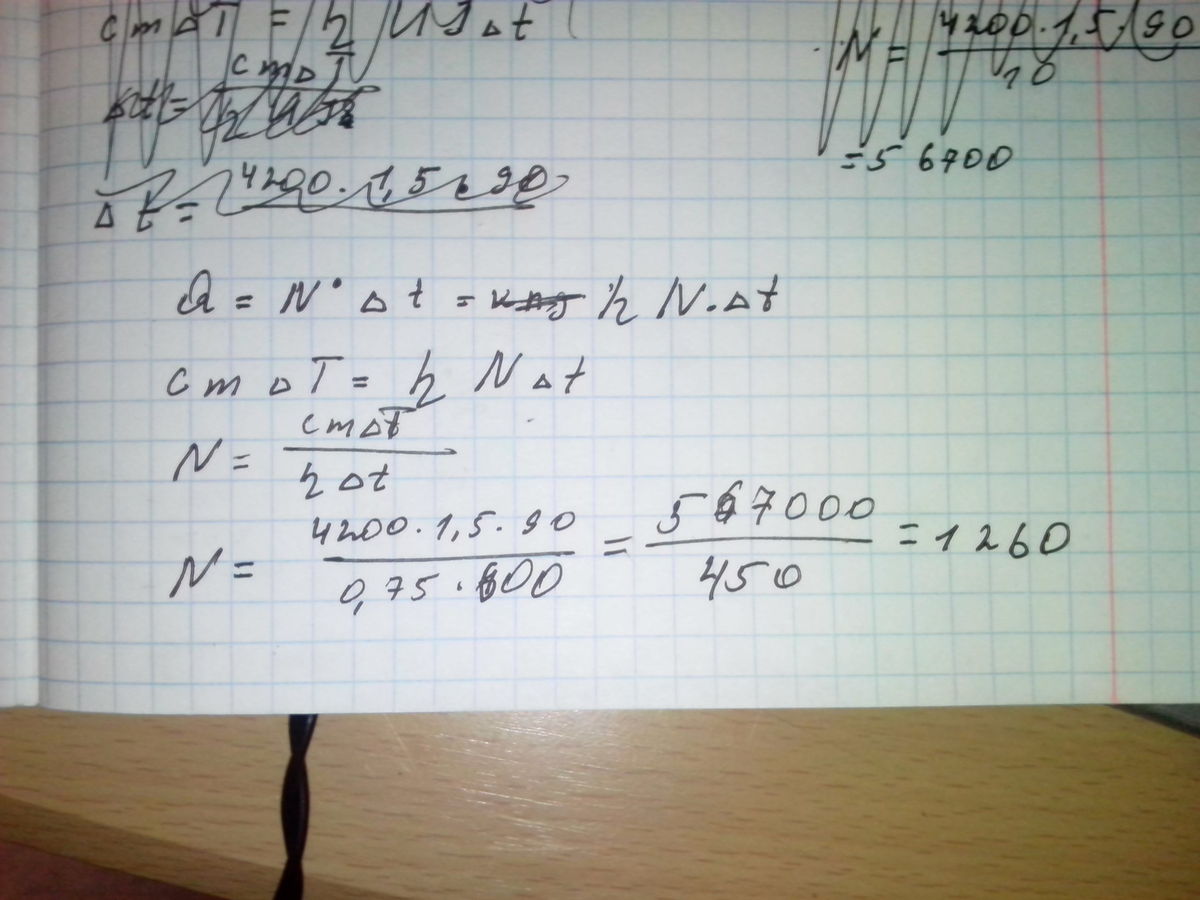 cmΔT = η UI Δt
Δt = cmΔT / η UI
Δt = 4200 · 1,5 · 90
N = 4200 · 1,5 · 90 / 10
= 56700
Q = N · Δt = η N · Δt
cmΔT = η N Δt
N = cmΔT / η Δt
N = 4200 · 1,5 · 90 / 0,75 · 600 = 567000 / 450 = 1260